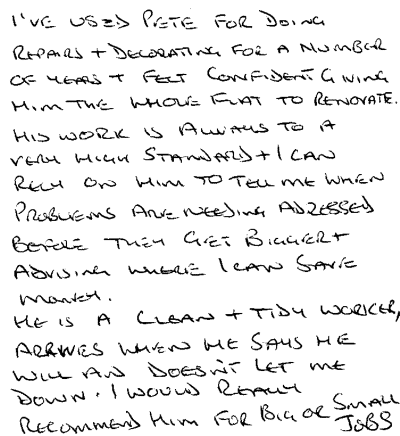 I'VE USED PETE FOR DOING
REPAIRS + DECORATING FOR A NUMBER
OF YEARS + FELT CONFIDENT GIVING
HIM THE WHOLE FLAT TO RENOVATE.
HIS WORK IS ALWAYS TO A
VERY HIGH STANDARD + I CAN
RELY ON HIM TO TELL ME WHEN
PROBLEMS ARE NEEDING ADRESSED
BEFORE THEY GET BIGGER +
ADVISING WHERE I CAN SAVE
MONEY.
HE IS A CLEAN + TIDY WORKER,
ARRIVES WHEN HE SAYS HE
WILL AN DOESN'T LET ME
DOWN. I WOULD REALLY
RECOMMEND HIM FOR BIG OR SMALL
JOBS